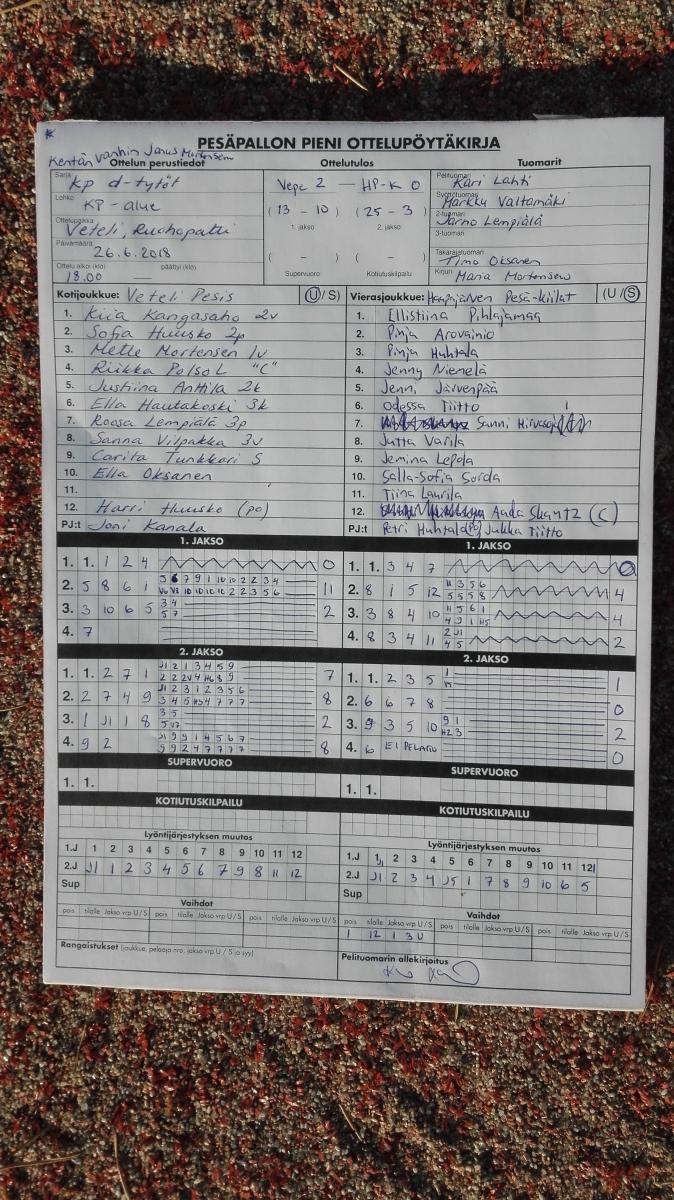 PESÄPALLON PIENI OTTELUPÖYTÄKIRJA
Kentän vanhin Janus Mortensen
Ottelun perustiedot
Sarja
KP d-tytöt
Lohko
KP-alue
Ottelupaikka
Veteli, Ruohopatti
Päivämäärä
26.6.2018
Ottelu alkoi (klo) päättyi (klo)
18.00
Ottelutulos
Vepe 2 — HP-K 0
(13 - 10) (25 - 3)
1. jakso 2. jakso
( - ) ( - )
Supervuoro Kotiutuskilpailu
Tuomarit
Pelituomari
Kari Lahti
Syöttötuomari
Markku Valtamäki
2-tuomari
Jarno Lempiälä
3-tuomari
Takarajatuomari
Timo Oksanen
Kirjuri
Maria Mortensen
Kotijoukkue: Veteli Pesis (U / S)
1. Kiia Kangasaho 2v
2. Sofia Huusko 2p
3. Mette Mortensen 1v
4. Riikka Polso L "C"
5. Justiina Anttila 2k
6. Ella Hautakoski 3k
7. Roosa Lempiälä 3p
8. Sanna Vilpakka 3v
9. Carita Tunkkari S
10. Ella Oksanen
11.
12. Harri Huusko (po)
PJ:t Joni Kanala
Vierasjoukkue: Haapajärven Pesä-kiilat (U / S)
1. Ellistiina Pihlajamaa
2. Pinja Arovainio
3. Pinja Huhtala
4. Jenny Niemelä
5. Jenni Järvenpää
6. Odessa Tiitto
7. Sanni Hirvasoja
8. Jutta Varila
9. Jemina Lepola
10. Salla-Sofia Sorda
11. Tiina Laurila
12. Anda Skantz (C)
PJ:t Petri Huhtala (po) Jukka Tiitto
1. JAKSO
1. 1. 1 2 4 0
2. 5 8 6 1 11
3. 3 10 6 5 3 4 2
5 7
4. 7
2. JAKSO
1. 1. 2 7 1 J1 2 1 3 4 5 9 7
2. 2 7 4 9 J1 2 3 1 2 3 5 6 8
3. 1 J1 1 8 3 5 2
4. 9 2 J1 9 9 1 4 5 6 7 8
9 9 2 4 7 7 7 7
SUPERVUORO
1. 1.
KOTIUTUSKILPAILU
Lyöntijärjestyksen muutos
1.J 1 2 3 4 5 6 7 8 9 10 11 12
2.J J1 1 2 3 4 5 6 7 9 8 11 12
Sup
Vaihdot
pois tilalle Jakso vrp U / S pois tilalle Jakso vrp U / S pois tilalle Jakso vrp U / S
Rangaistukset (joukkue, pelaaja nro, jakso vrp U / S ja syy)
1. JAKSO
1. 1. 3 4 7 0
2. 8 1 5 12 11 3 5 6 4
5 5 5 8
3. 3 8 4 10 11 5 6 1 4
4. 8 3 4 11 2 J1 2
4 5
2. JAKSO
1. 1. 2 3 5 1 1
2. 6 6 7 8 0
3. 9 3 5 10 9 1 2
H2 3
4. 6 EI PELATTU 0
SUPERVUORO
1. 1.
KOTIUTUSKILPAILU
Lyöntijärjestyksen muutos
1.J 1 2 3 4 5 6 7 8 9 10 11 12
2.J J1 2 3 4 J5 1 7 8 9 10 6 5
Sup
Vaihdot
pois tilalle Jakso vrp U / S pois tilalle Jakso vrp U / S pois tilalle Jakso vrp U / S
1 12 1 3 U
Pelituomarin allekirjoitus